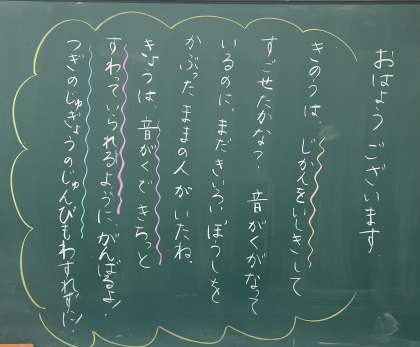 おはようございます。
きのうは、じかんをいしきして
すごせたかな？音がくがなって
いるのに、まだきいろいぼうしを
かぶったままの人がいたね。
きょうは、音がくできちっと
すわっていられるように、がんばるよ！
つぎのじゅぎょうのじゅんびもわすれずに！